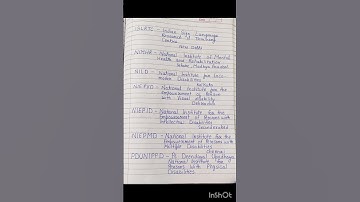 ISLRTC - Indian Sign Language
Research & Training
Centre
New Delhi
NIMHR - National Institute of Mental
Health and Rehabilitation
Sehore, Madhya Pradesh
NILD - National Institute for Loco-
motor Disabilities
Kolkata
NIEPVD - National Institute for the
Empowerment of Persons
with Visual
Dehradun
NIEPID - National Institute for the
Empowerment of Persons with
Intellectual Disability
Secunderabad
NIEPMD - National Institute for the
Empowerment of Persons with
Multiple Disabilities
Chennai
PDUNIPPD - Pt Deendayal Upadhyaya
National Institute for
Persons with Physical
Disabilities
InShOt